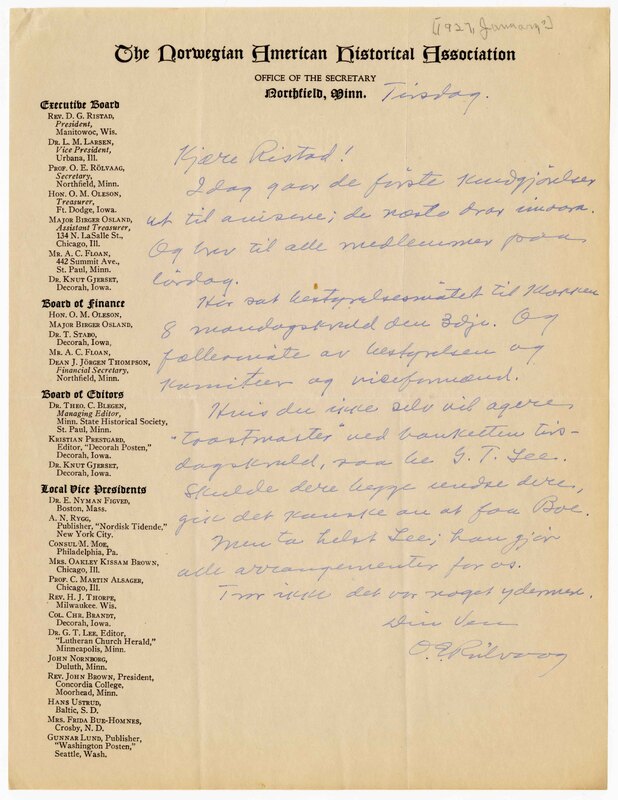 [1927, January?]
The Norwegian American Historical Association
OFFICE OF THE SECRETARY
Northfield, Minn.
Tirsdag.
Executive Board
REV. D. G. RISTAD,
President,
Manitowoc, Wis.
DR. L. M. LARSEN,
Vice President,
Urbana, Ill.
PROF. O. E. RÖLVAAG,
Secretary,
Northfield, Minn.
HON. O. M. OLESON,
Treasurer,
Ft. Dodge, Iowa.
MAJOR BIRGER OSLAND,
Assistant Treasurer,
134 N. LaSalle St.,
Chicago, Ill.
MR. A. C. FLOAN,
442 Summit Ave.,
St. Paul, Minn.
DR. KNUT GJERSET,
Decorah, Iowa.
Board of Finance
HON. O. M. OLESON,
MAJOR BIRGER OSLAND,
DR. T. STABO,
Decorah, Iowa.
MR. A. C. FLOAN,
DEAN J. JÖRGEN THOMPSON,
Financial Secretary,
Northfield, Minn.
Board of Editors
DR. THEO. C. BLEGEN,
Managing Editor,
Minn. State Historical Society,
St. Paul, Minn.
KRISTIAN PRESTGARD,
Editor, "Decorah Posten,"
Decorah, Iowa.
DR. KNUT GJERSET,
Decorah, Iowa.
Local Vice Presidents
DR. E. NYMAN FIGVED,
Boston, Mass.
A. N. RYGG,
Publisher, "Nordisk Tidende,"
New York City.
CONSUL M. MOE,
Philadelphia, Pa.
MRS. OAKLEY KISSAM BROWN,
Chicago, Ill.
PROF. C. MARTIN ALSAGER,
Chicago, Ill.
REV. H. J. THORPE,
Milwaukee. Wis.
COL. CHR. BRANDT,
Decorah, Iowa.
DR. G. T. LEE, Editor,
"Lutheran Church Herald,"
Minneapolis, Minn.
JOHN NORNBORG,
Duluth, Minn.
REV. JOHN BROWN, President,
Concordia College,
Moorhead, Minn.
HANS USTRUD,
Baltic, S. D.
MRS. FRIDA BUE-HOMNES,
Crosby, N. D.
GUNNAR LUND, Publisher,
"Washington Posten,"
Seattle, Wash.
Kjære Ristad!
Idag gaar de förste kundgjörelser
ut til avisene; de næste drar imorn.
Og brev til alle medlemmer paa
lördag.
Har sat bestyrelsesmötet til klokken
8 mandagskveld den 3dje. Og
fællesmöte av bestyrelsen og
komiteer og viseformænd.
Hvis du ikke selv vil agere
"toastmaster" ved banketten tirs-
dagskveld, saa be G. T. Lee.
Skulde dere begge undse dere,
gik det kanske an at faa Boe.
Men ta helst Lee; han gjör
alle arrangementer for os.
Tror ikke det var noget ydermere.
Din Ven
O. E. Rölvaag